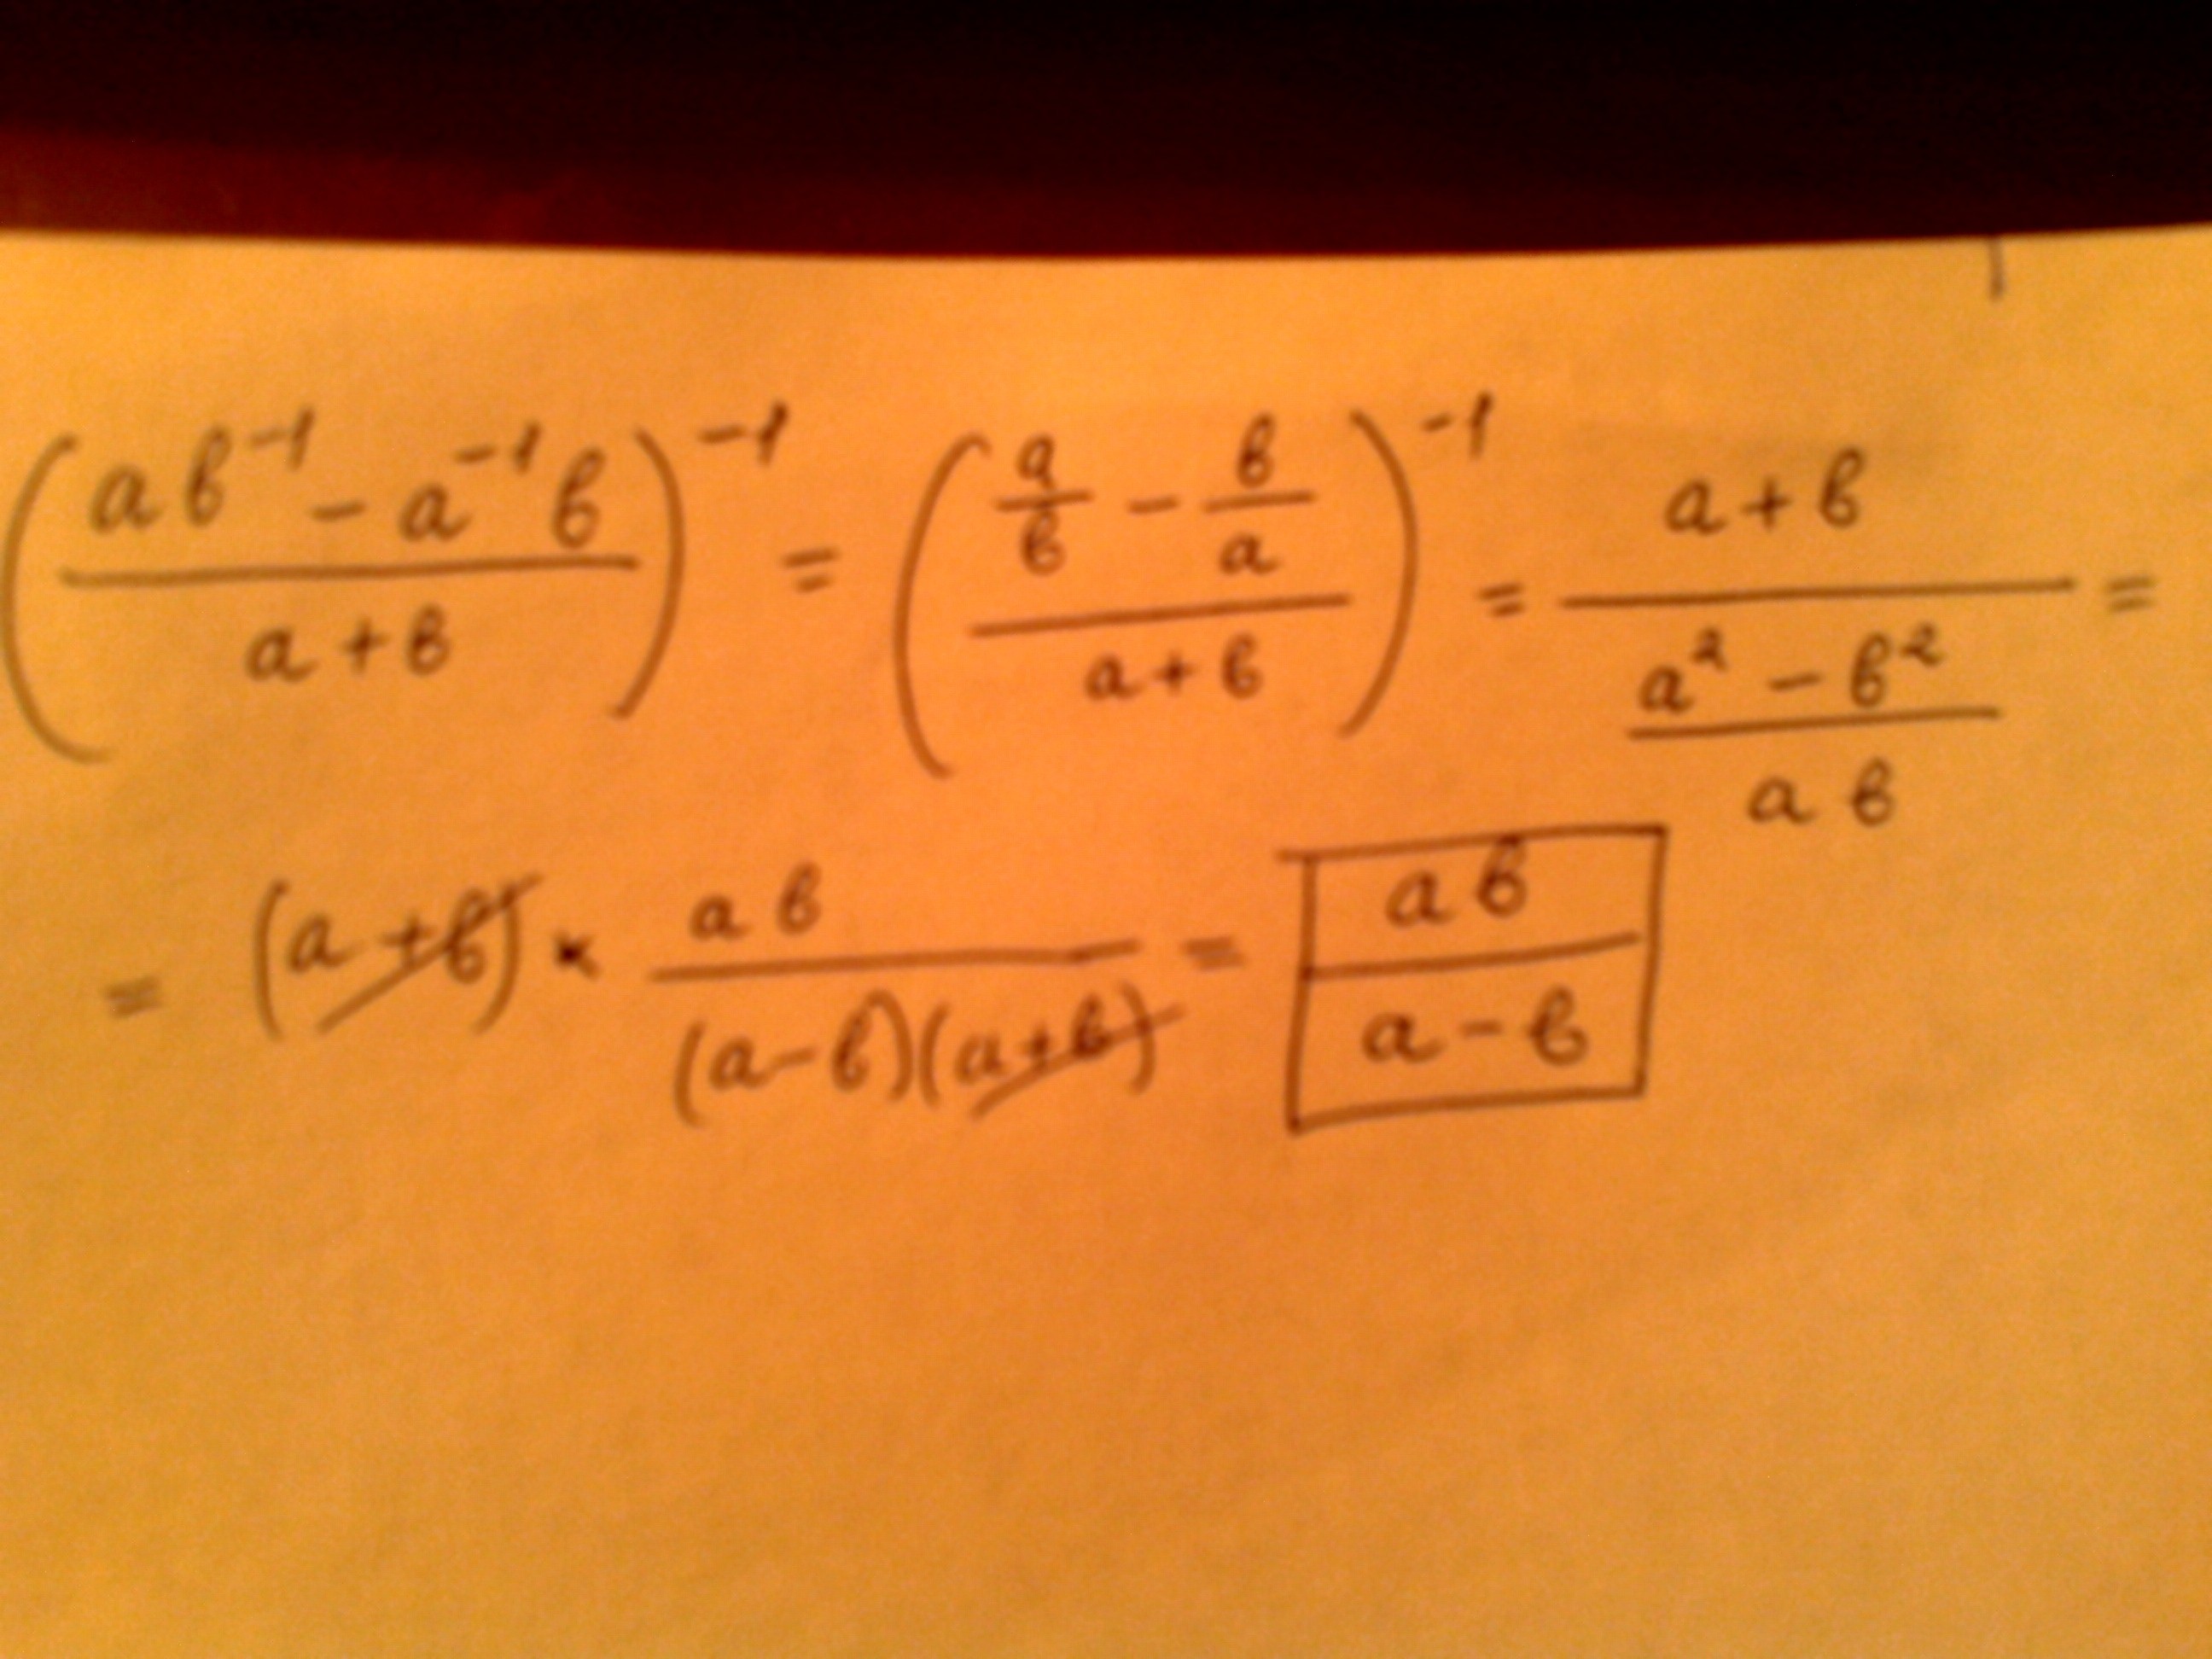 (ab⁻¹ - a⁻¹b / a+b)⁻¹ = (a/b - b/a / a+b)⁻¹ = a+b / (a² - b² / ab) =
= (a+b) * ab / (a-b)(a+b) = ab / a-b